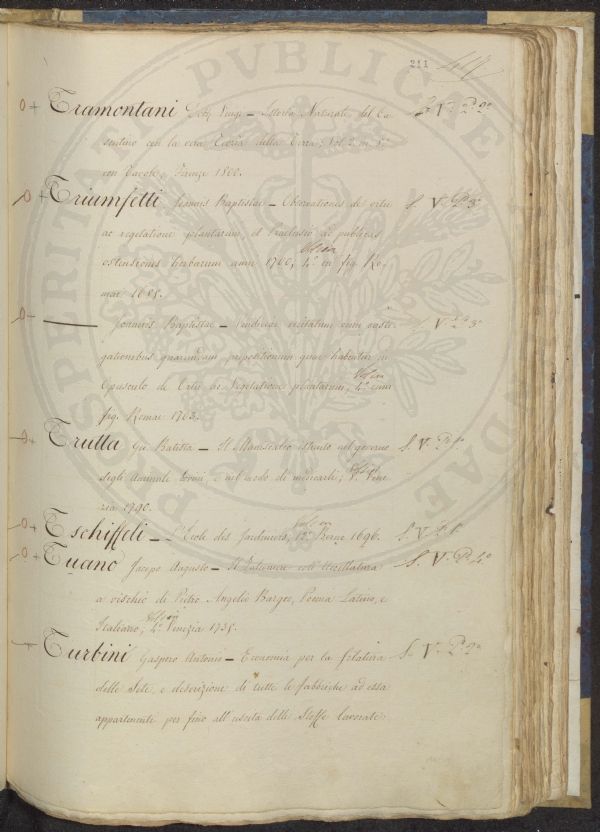 211
Tramontani Luigi — Istoria Naturale del Ca= S. V. P. 2°
sentino con la vera Teoria della Terra; Vol. 2 in 8°
con Tavole, Firenze 1800.
Triumfetti Joannis Baptistae — Observationes de ortu S. V. P. 3°
ac vegetatione plantarum, et Praelusio ad publicas
ostensiones herbarum anni 1700, Vol. un 4° cum fig. Ro=
mae 1685.
Joannis Baptistae — Vindiciae veritatum cum casti S. V. P. 3°
gationibus quarundam propositionum quae habentur in
Opusculo de Ortu ac Vegetatione plantarum, Vol. un 4° cum
fig. Romae 1703.
Trutta Gio. Batista — Il Maniscalco istruito nel governo S. V. P.
degli Animali bovini, e nel modo di medicarli; 8° Vene
zia 1790.
Tschiffeli — L'École des Jardiniers, Vol. un 12° Berne 1696. S. V. P. 1°
Tuano Jacopo Augusto — Il Falconiere coll' Uccellatura S. V. P. 4°
a vischio di Pietro Angelio Bargeo, Poema Latino, e
Italiano, Vol. un 4° Venezia 1735.
Turbini Gaspero Antonio — Economia per la filatura S. V. P. 2°
delle Sete, e descrizione di tutte le fabbriche ad essa
appartenenti per fino all' uscita delle Stoffe lavorate
PROSPERITATI PUBLICAE AUGENDAE